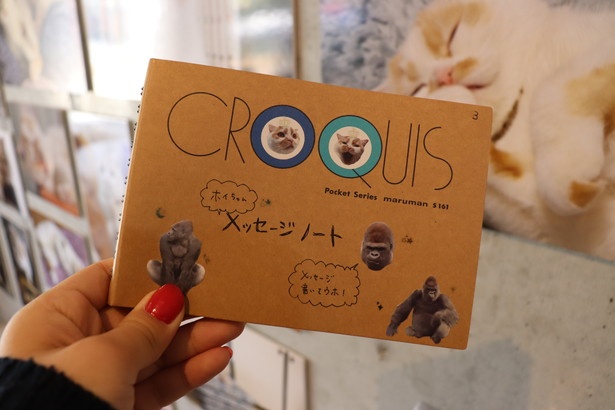 3
CROQUIS
Pocket Series maruman S161
ホイちゃん
メッセージノート
メッセージ
書いてウホ！